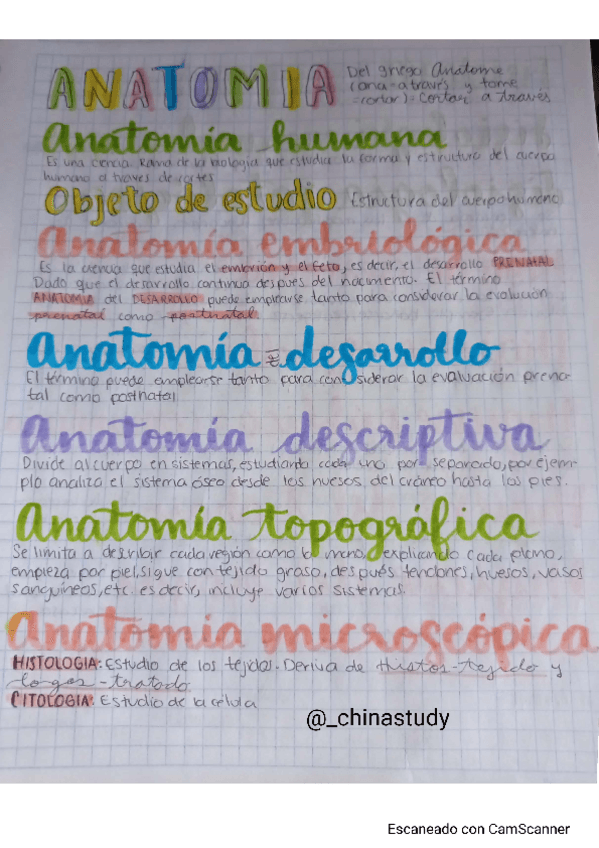 ANATOMIA Del griego Anatome
(ana = a través y tome
= cortar) = Cortar a través
Anatomía humana
Es una ciencia Rama de la biología que estudia la forma y estructura del cuerpo
humano a traves de cortes
Objeto de estudio Estructura del cuerpo humano
Anatomía embriológica
Es la ciencia que estudia el embrión y el feto, es decir, el desarrollo PRENATAL
Dado que el desarrollo continua despues del nacimento. El término
ANATOMIA del DESARROLLO puede emplearse tanto para considerar la evolución
prenatal como postnatal.
Anatomía del desarrollo
El término puede emplearse tanto para considerar la evaluación prena-
tal como postnatal
Anatomía descriptiva
Divide al cuerpo en sistemas, estudiando cada uno por separado, por ejem-
plo analiza el sistema óseo desde los huesos del cráneo hasta los pies.
Anatomía topográfica
Se limita a describir cada región como la mano, explicando cada plano,
empieza por piel, sigue con tejido graso, después tendones, huesos, vasos
sanguíneos, etc. es decir, incluye varios sistemas.
Anatomía microscópica
HISTOLOGIA: Estudio de los tejidos. Deriva de Histos-tejido y
logos-tratado
CITOLOGIA: Estudio de la célula
@_chinastudy
Escaneado con CamScanner